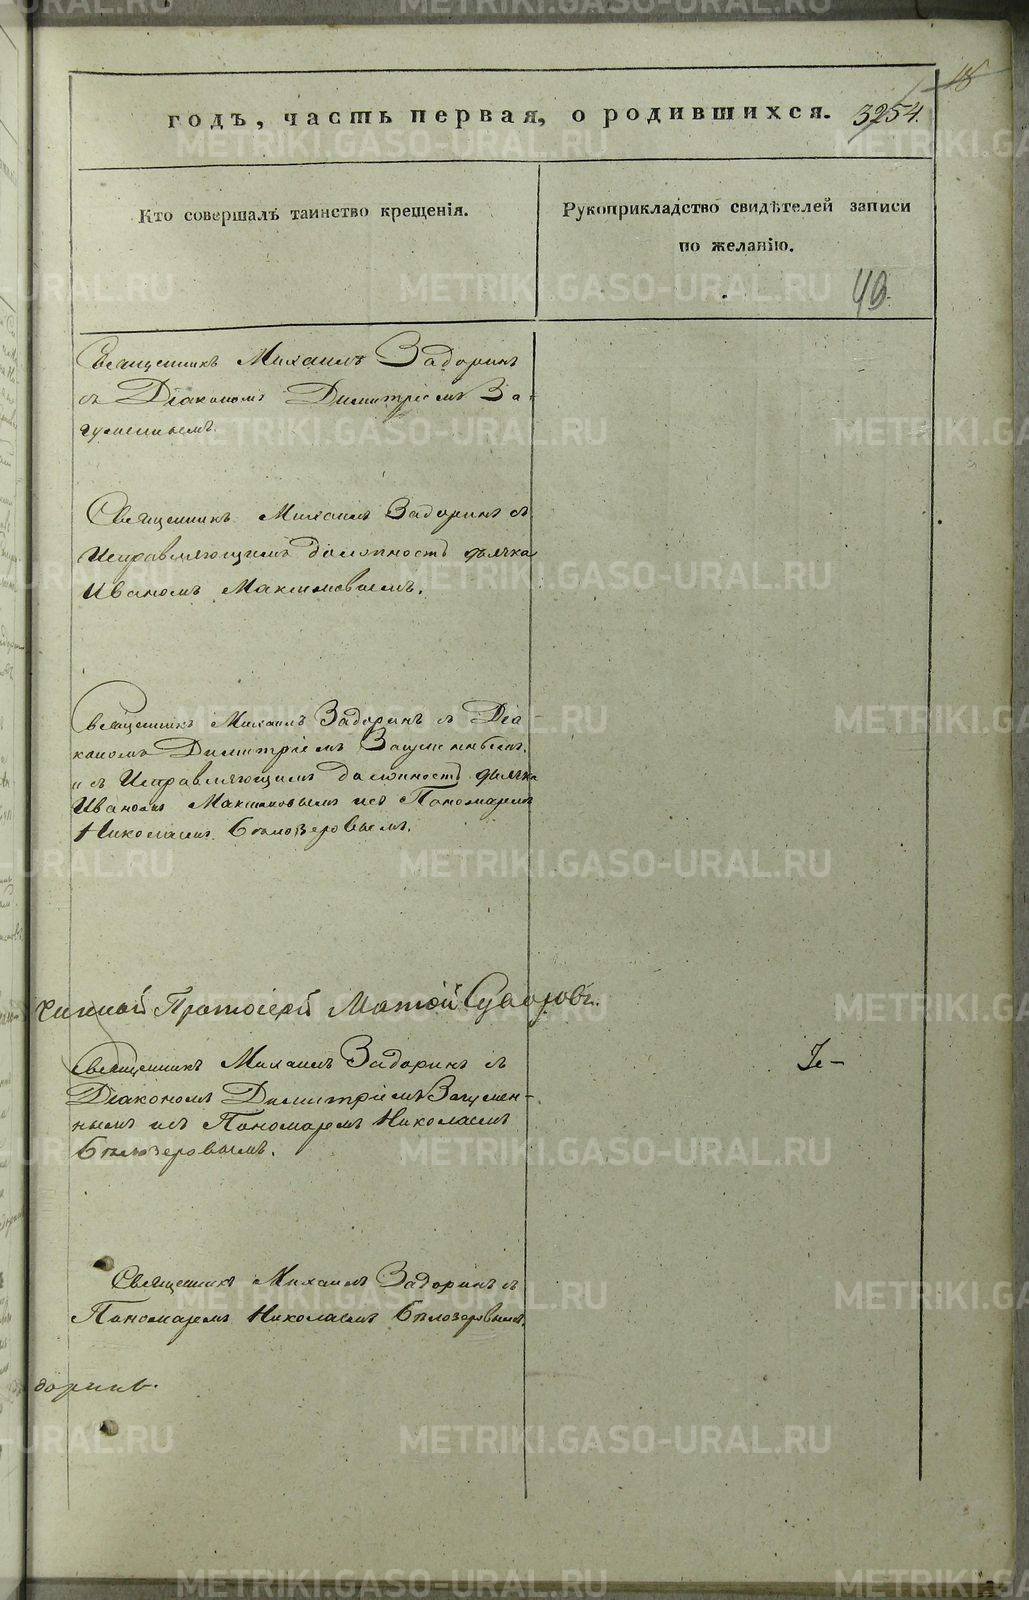 18
годъ, часть первая, о родившихся. 3254.
Кто совершалъ таинство крещенія.
Рукоприкладство свидѣтелей записи
по желанію.
40.
Священникъ Михаилъ Задоринъ
съ Діакономъ Димитріемъ За-
гуменнымъ.
Священникъ Михаилъ Задоринъ съ
Исправляющимъ должность дьячка
Иваномъ Максимовымъ.
Священникъ Михаилъ Задоринъ съ Діа-
кономъ Димитріемъ Загуменнымъ.
и съ Исправляющимъ должность дьячка
Иваномъ Максимовымъ и съ Пономаремъ
Николаемъ Бѣлозеровымъ.
чинный Протоіерей Матѳій Суворовъ.
Священникъ Михаилъ Задоринъ съ
Діакономъ Димитріемъ Загумен-
нымъ и съ Пономаремъ Николаемъ
Бѣлозеровымъ.
Священникъ Михаилъ Задоринъ съ
Пономаремъ Николаемъ Бѣлозеровымъ.
доринъ.
METRIKI.GASO-URAL.RU